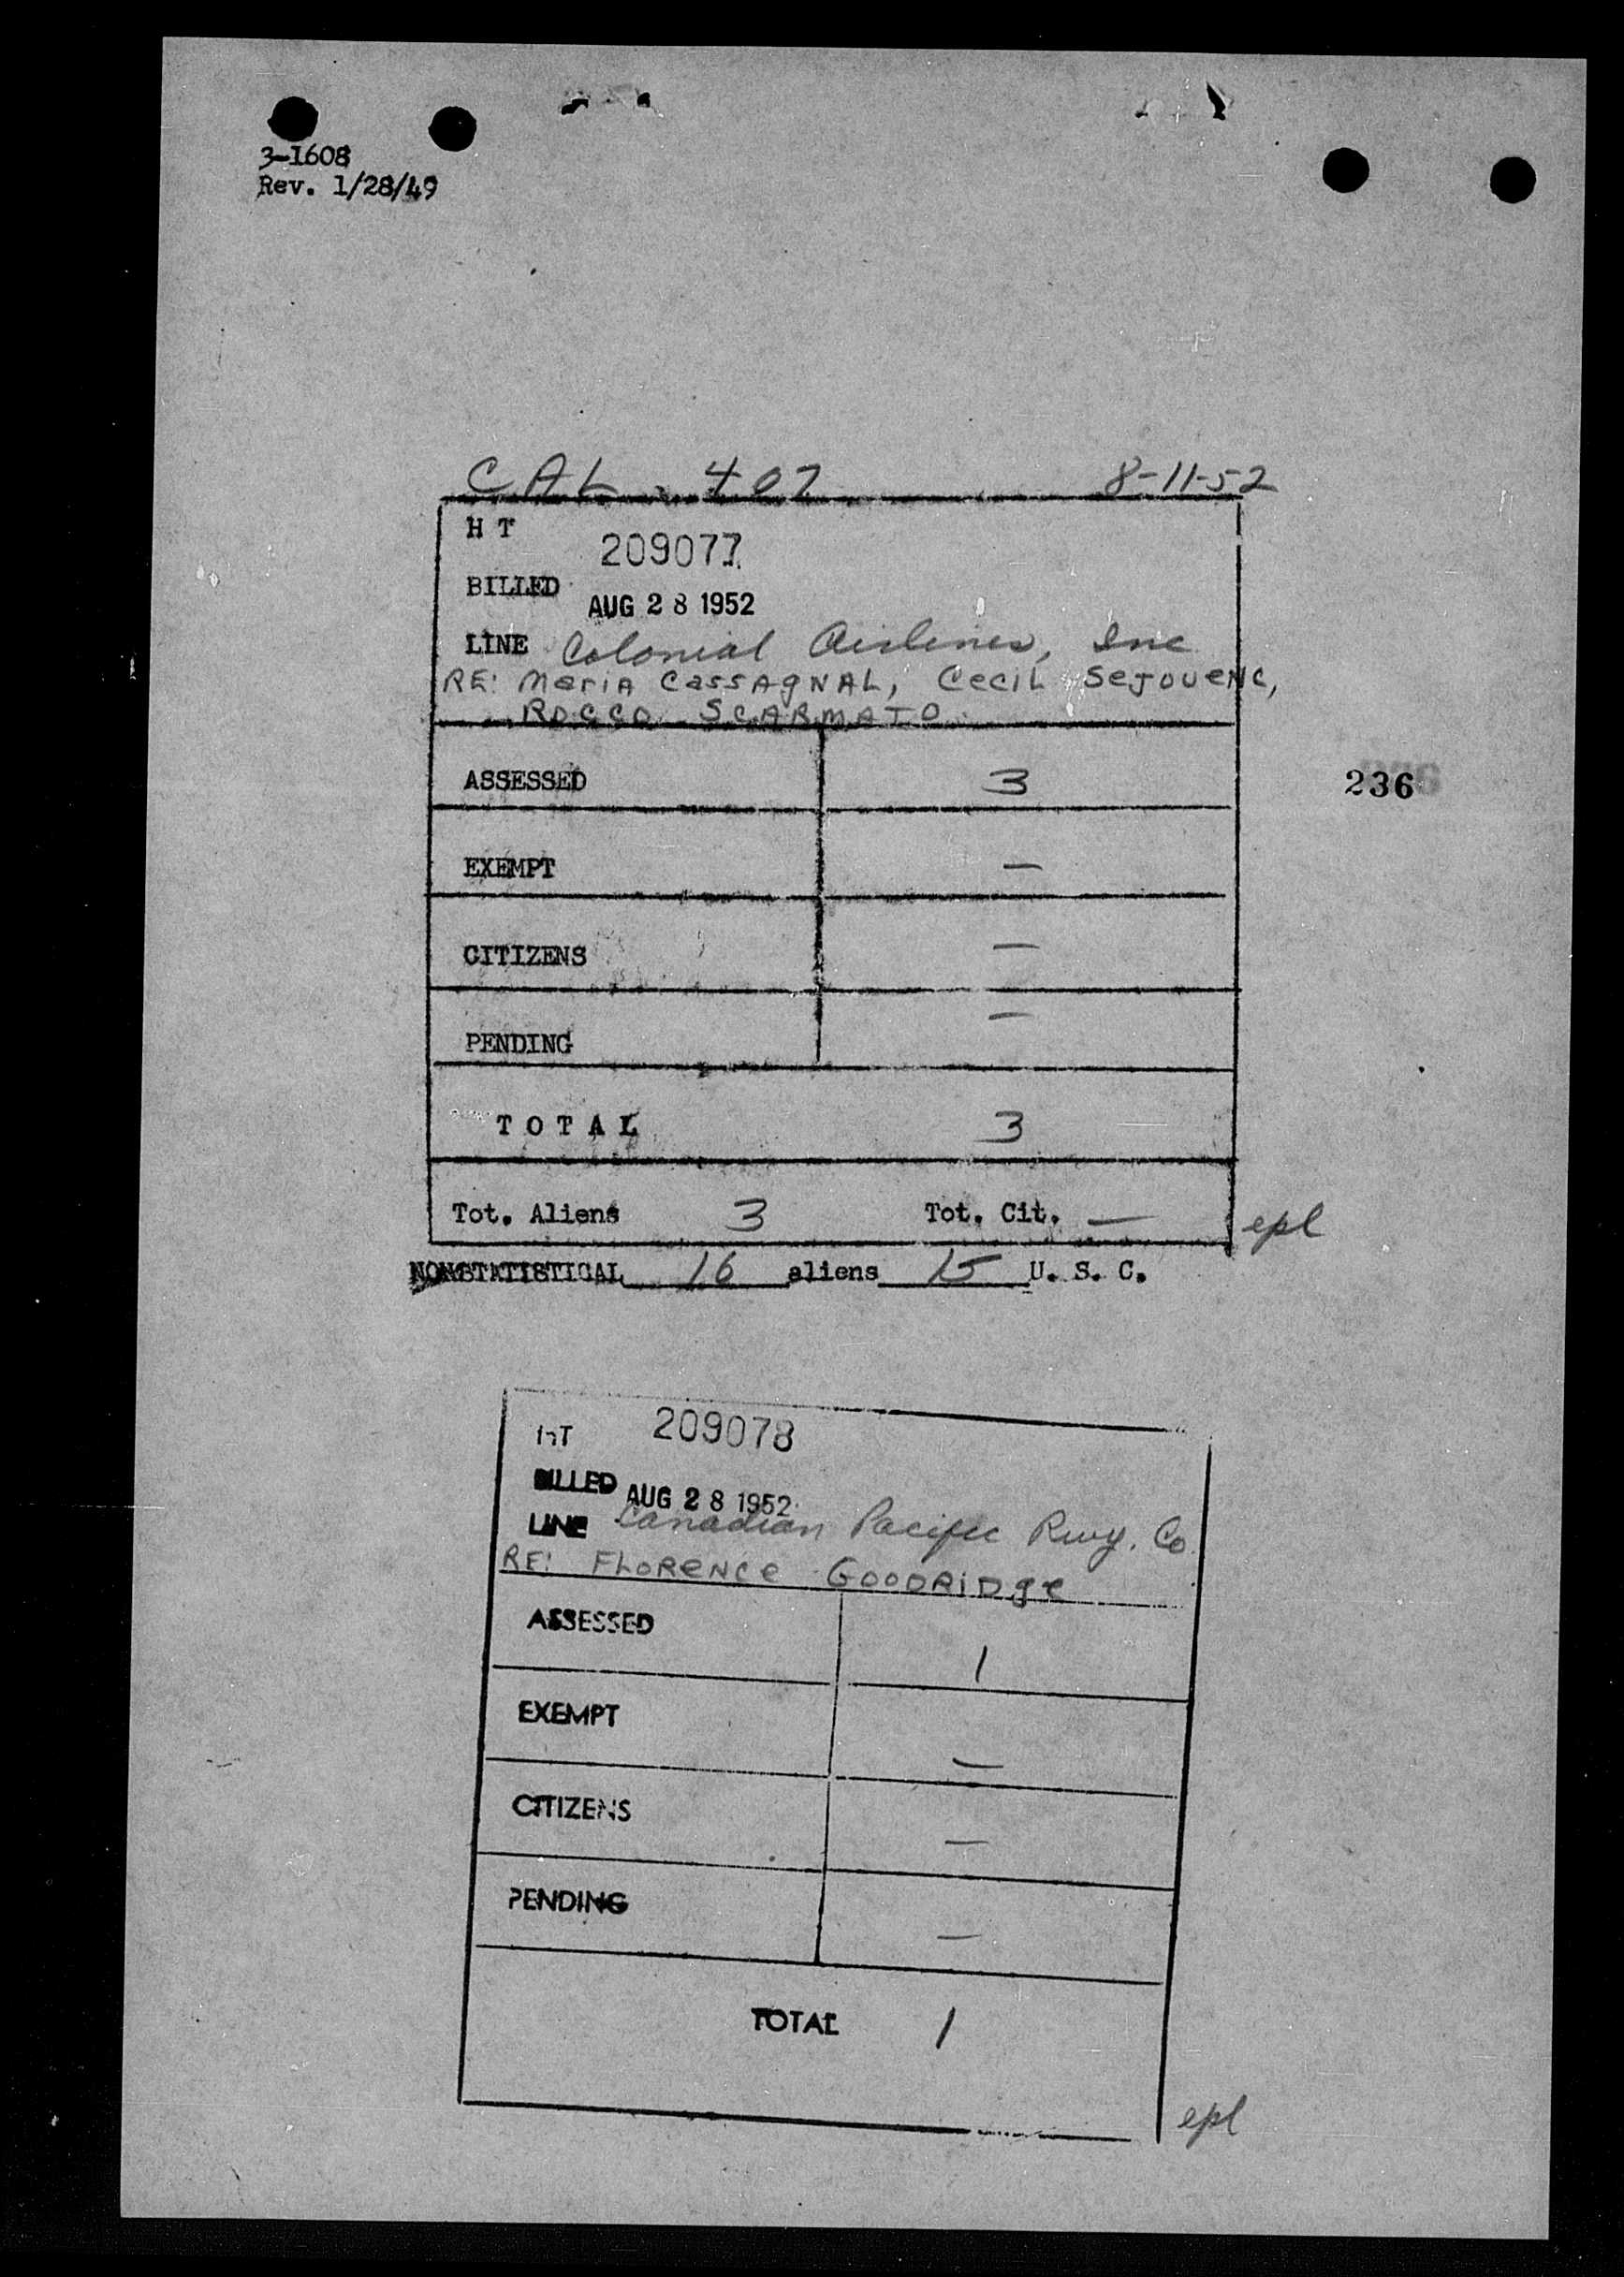 3-1608
Rev. 1/28/49
CAL 407 8-11-52
H T 209077
BILLED AUG 28 1952
LINE Colonial Airlines, Inc
RE: Maria CassAgNAL, Cecil SeJoueNC,
Rocco SCARMATO
ASSESSED 3
236
EXEMPT —
CITIZENS —
PENDING —
T O T A L 3
Tot. Aliens 3 Tot. Cit. — epl
NONSTATISTICAL 16 aliens 15 U. S. C.
HT 209078
BILLED AUG 28 1952
LINE Canadian Pacific Rwy. Co
RE: FLORENCE GOODRIDge
ASSESSED 1
EXEMPT —
CITIZENS —
PENDING —
TOTAL 1
epl